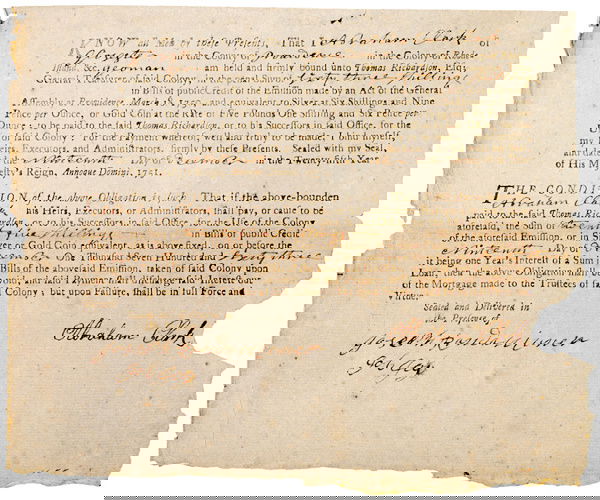 KNOW all Men by these Presents, That I Abraham Clark of
in the County of Providence in the Colony of Rhode-
Island, &c. Yeoman am held and firmly bound unto Thomas Richardson, Esq;
General Treasurer of said Colony, in the penal Sum of three Shillings
in Bills of public Credit of the Emission made by an Act of the General
Assembly at Providence, March 18, 1750, and equivalent to Silver at Six Shillings and Nine
Pence per Ounce, or Gold Coin at the Rate of Five Pounds One Shilling and Six Pence per
Ounce; to be paid to the said Thomas Richardson, or to his Successors in said Office, for the
Use of said Colony: For the Payment whereof, well and truly to be made, I bind myself,
my Heirs, Executors, and Administrators, firmly by these Presents. Sealed with my Seal,
and dated the Day of in the Twenty-fifth Year
of His Majesty's Reign, Annoque Domini, 1751.
THE CONDI-
TION of the above Obligation is such, That if the above-bounden
Abraham Clark
his Heirs, Executors, or Administrators, shall pay, or cause to be
paid to the said Thomas
Richardson, or to his Successors in said Office, for the Use of the Colony
aforesaid, the Sum of
Shillings in Bills of public Credit
of the aforesaid Emission, or in
Silver or Gold Coin equivalent, as is above fixed, on or before the
Day of
One Thousand Seven Hundred and
it being one Year's Interest of a Sum
Bills of the abovesaid Emission, taken of said Colony upon
Loan, then the above Obligation shall be
and said Payment shall discharge said Interest out
of the Mortgage made to the Trustees of said
Colony; but upon Failure, shall be in full Force and
Virtue.
Sealed and Delivered in
the Presence of
Abraham Clark